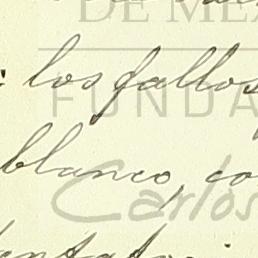 DE MÉX
los fallos
FUNDA
blanco, co
Carlos